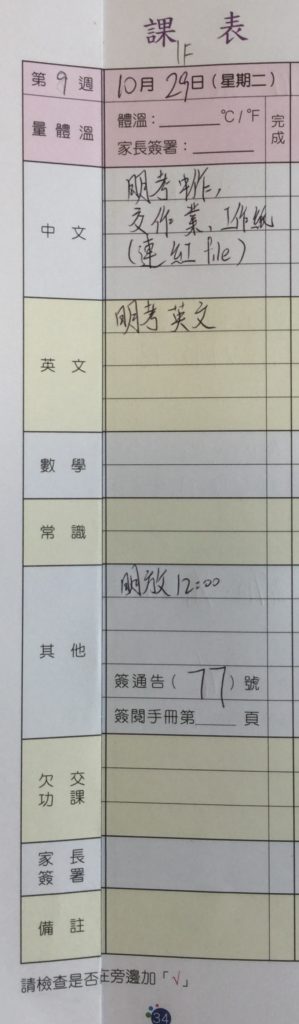 課表
1F
第9週 10月29日(星期二)
量體溫 體溫:______ °C/°F 完成
家長簽署:______
中文 明考中作,
交作業、工作紙
(連紅file)
英文 明考英文
數學
常識
其他 明放12:00
簽通告(77)號
簽閱手冊第____頁
欠交功課
家長簽署
備註
請檢查是否在旁邊加「√」
34